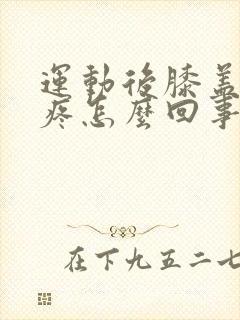 運動後膝蓋
疼怎麼回事
在下九五二七